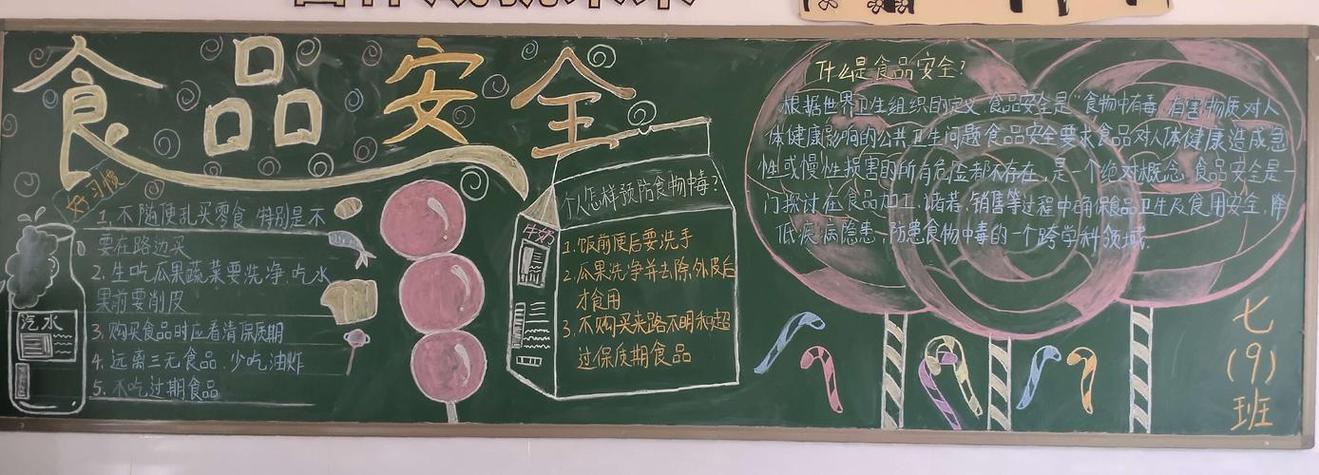 食品安全
好习惯
1. 不随便乱买零食,特别是不
要在路边买
2. 生吃瓜果蔬菜要洗净.吃水
果前要削皮
3. 购买食品时应看清保质期
4. 远离三无食品.少吃油炸
5. 不吃过期食品
汽水
个人怎样预防食物中毒?
牛奶
1. 饭前便后要洗手
2. 瓜果洗净并去除外皮后
才食用
3. 不购买来路不明和超
过保质期食品
什么是食品安全?
根据世界卫生组织的定义,食品安全是“食物中有毒、有害物质对人
体健康影响的公共卫生问题”食品安全要求食品对人体健康造成急
性或慢性损害的所有危险都不存在,是一个绝对概念,食品安全是一
门探讨在食品加工、储存、销售等过程中确保食品卫生及食用安全,降
低疾病隐患,防患食物中毒的一个跨学科领域.
七
(9)
班